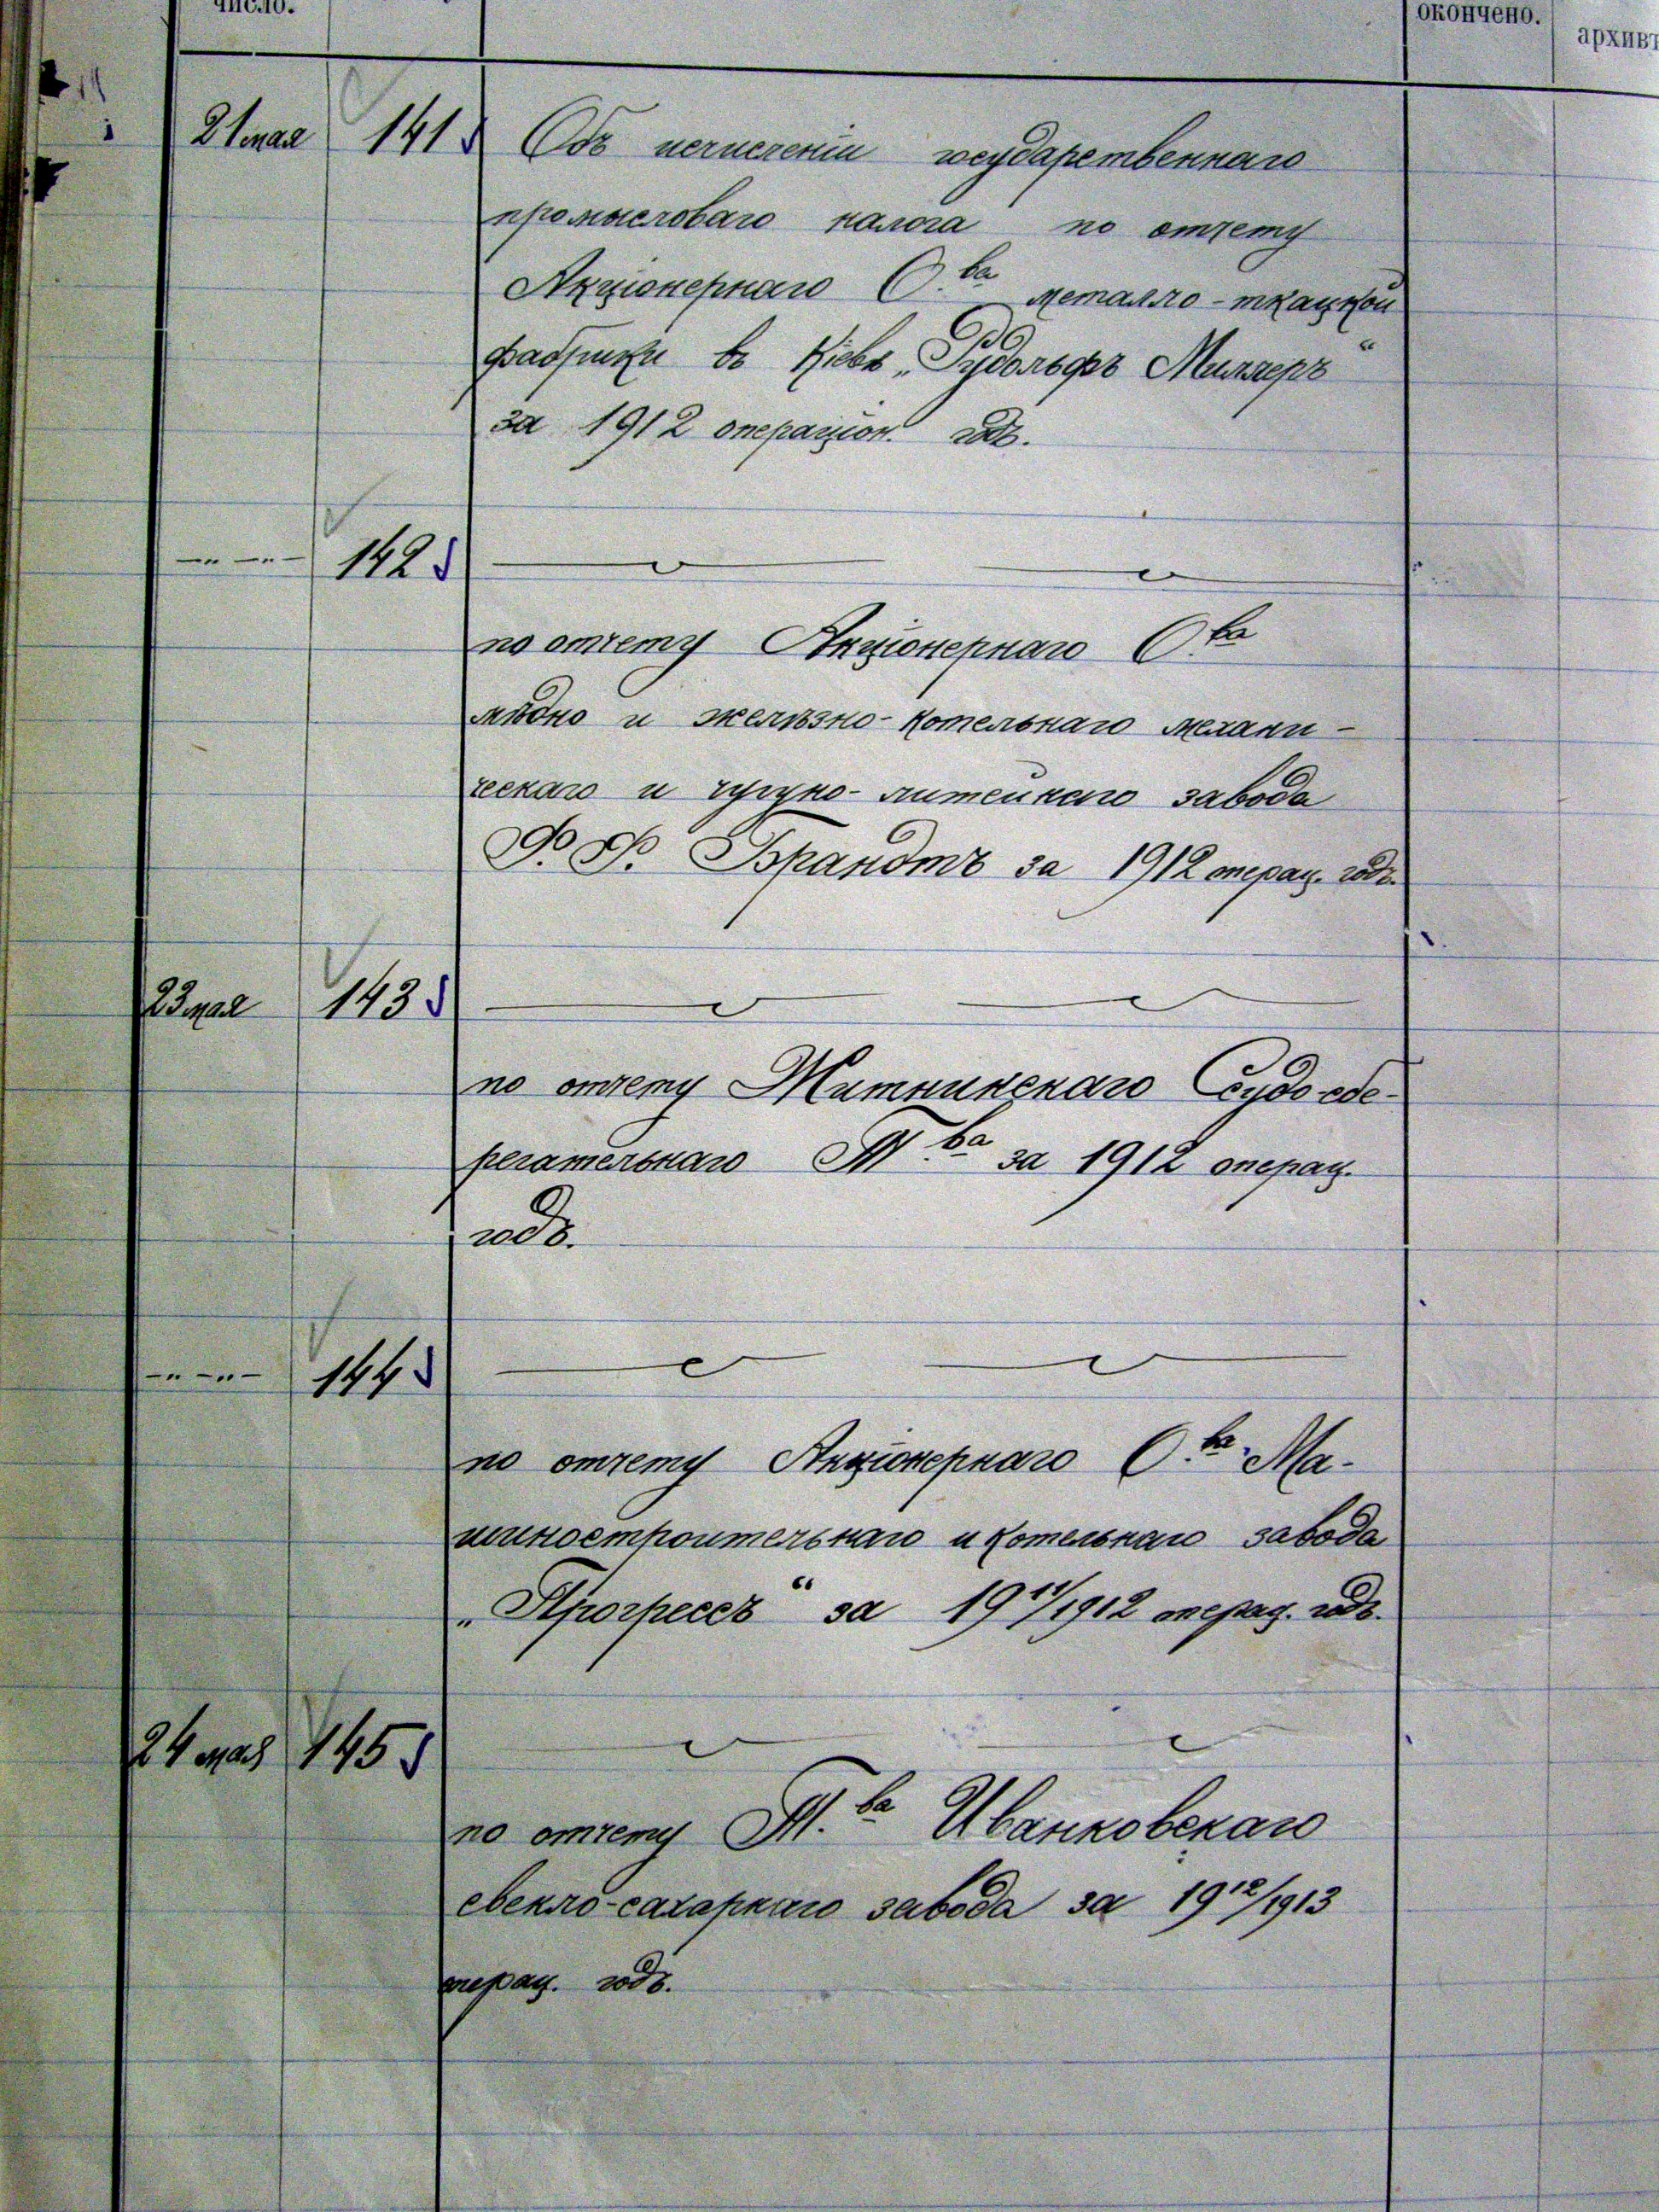 число.
окончено.
архивъ
21 мая 141 Объ исчисленіи государственнаго
промысловаго налога по отчету
Акціонернаго О.ва металло-ткацкой
фабрики въ Кіевѣ „Рудольфъ Миллеръ“
за 1912 операціон. годъ.
—"—"— 142 — " — — " —
по отчету Акціонернаго О.ва
мѣдно и желѣзно-котельнаго механи-
ческаго и чугуно-литейнаго завода
Ф. Ф. Брандтъ за 1912 операц. годъ.
23 мая 143 — " — — " —
по отчету Житницкаго Ссудо-сбе-
регательнаго Т.ва за 1912 операц.
годъ.
—"—"— 144 — " — — " —
по отчету Акціонернаго О.ва Ма-
шиностроительнаго и котельнаго завода
„Прогрессъ“ за 1911/1912 операц. годъ.
24 мая 145 — " — — " —
по отчету Т.ва Иванковскаго
свекло-сахарнаго завода за 1912/1913
операц. годъ.